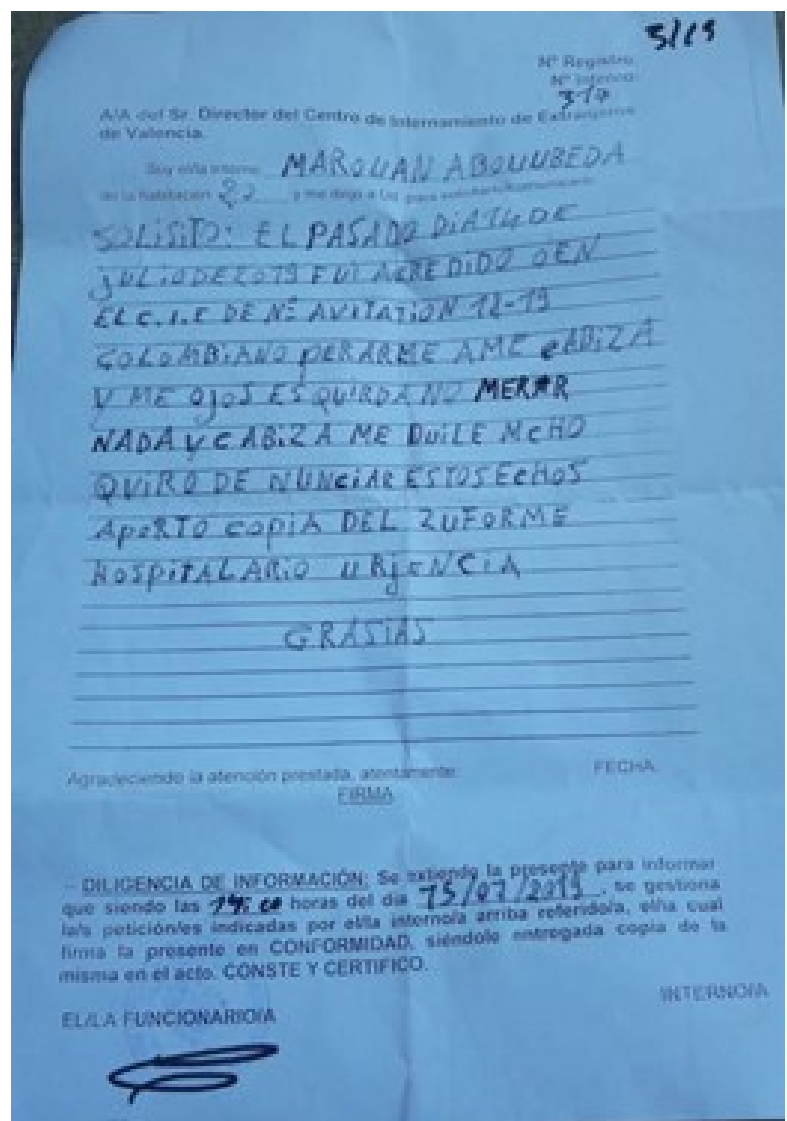 5/19
Nº Registro:
Nº Interno:
317
A/A del Sr. Director del Centro de Internamiento de Extranjeros
de Valencia.
Soy el/la interno MAROUAN ABOUUBEDA
de la habitación y me dirijo a Ud. para
SOLISITO: EL PASADO DiA 14 DE
jULiO DE 2019 FUI ACREDIDO OEN
EL C.I.E DE Nº AVITATiON 12-19
COLOMBiANO PERARME AME eABiZA
Y ME OjOS ESQUiRDA NO MERAR
NADA Y CABiZA ME DUiLE McHO
QUiRO DE NUNCiAR ESTOS EcHOS
APoRTO copiA DEL ZUFORME
HOSPiTALARiO URjENCiA
GRASiAS
Agradeciendo la atención prestada, atentamente. FECHA.
FIRMA
– DILIGENCIA DE INFORMACIÓN: Se extiende la presente para informar
que siendo las horas del día 15/07/2019, se gestiona
la/s petición/es indicadas por el/la interno/a arriba referido/a, el/la cual
firma la presente en CONFORMIDAD, siéndole entregada copia de la
misma en el acto. CONSTE Y CERTIFICO.
INTERNO/A
EL/LA FUNCIONARIO/A